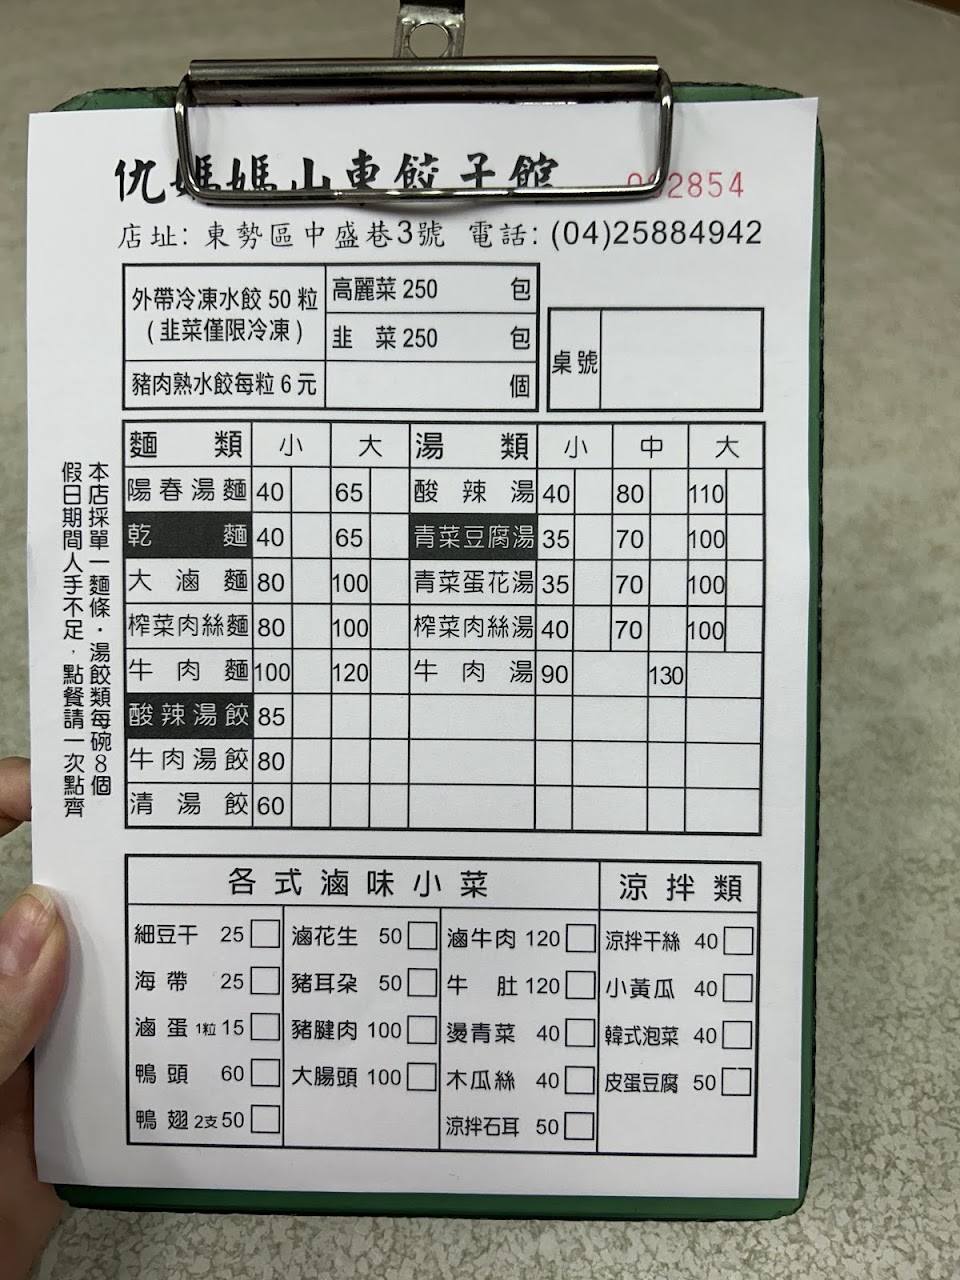 仇媽媽山東餃子館
002854
店址: 東勢區中盛巷3號 電話: (04)25884942
外帶冷凍水餃 50 粒
(韭菜僅限冷凍)
高麗菜 250 包
韭 菜 250 包
豬肉熟水餃每粒 6 元 個
桌號
本店採單一麵條・湯餃類每碗8個
假日期間人手不足,點餐請一次點齊
麵 類 小 大 湯 類 小 中 大
陽春湯麵 40 65 酸辣湯 40 80 110
乾麵 40 65 青菜豆腐湯 35 70 100
大滷麵 80 100 青菜蛋花湯 35 70 100
榨菜肉絲麵 80 100 榨菜肉絲湯 40 70 100
牛肉麵 100 120 牛肉湯 90 130
酸辣湯餃 85
牛肉湯餃 80
清湯餃 60
各式滷味小菜 涼拌類
細豆干 25 滷花生 50 滷牛肉 120 涼拌干絲 40
海帶 25 豬耳朵 50 牛肚 120 小黃瓜 40
滷蛋 1粒 15 豬腱肉 100 燙青菜 40 韓式泡菜 40
鴨頭 60 大腸頭 100 木瓜絲 40 皮蛋豆腐 50
鴨翅 2支 50 涼拌石耳 50